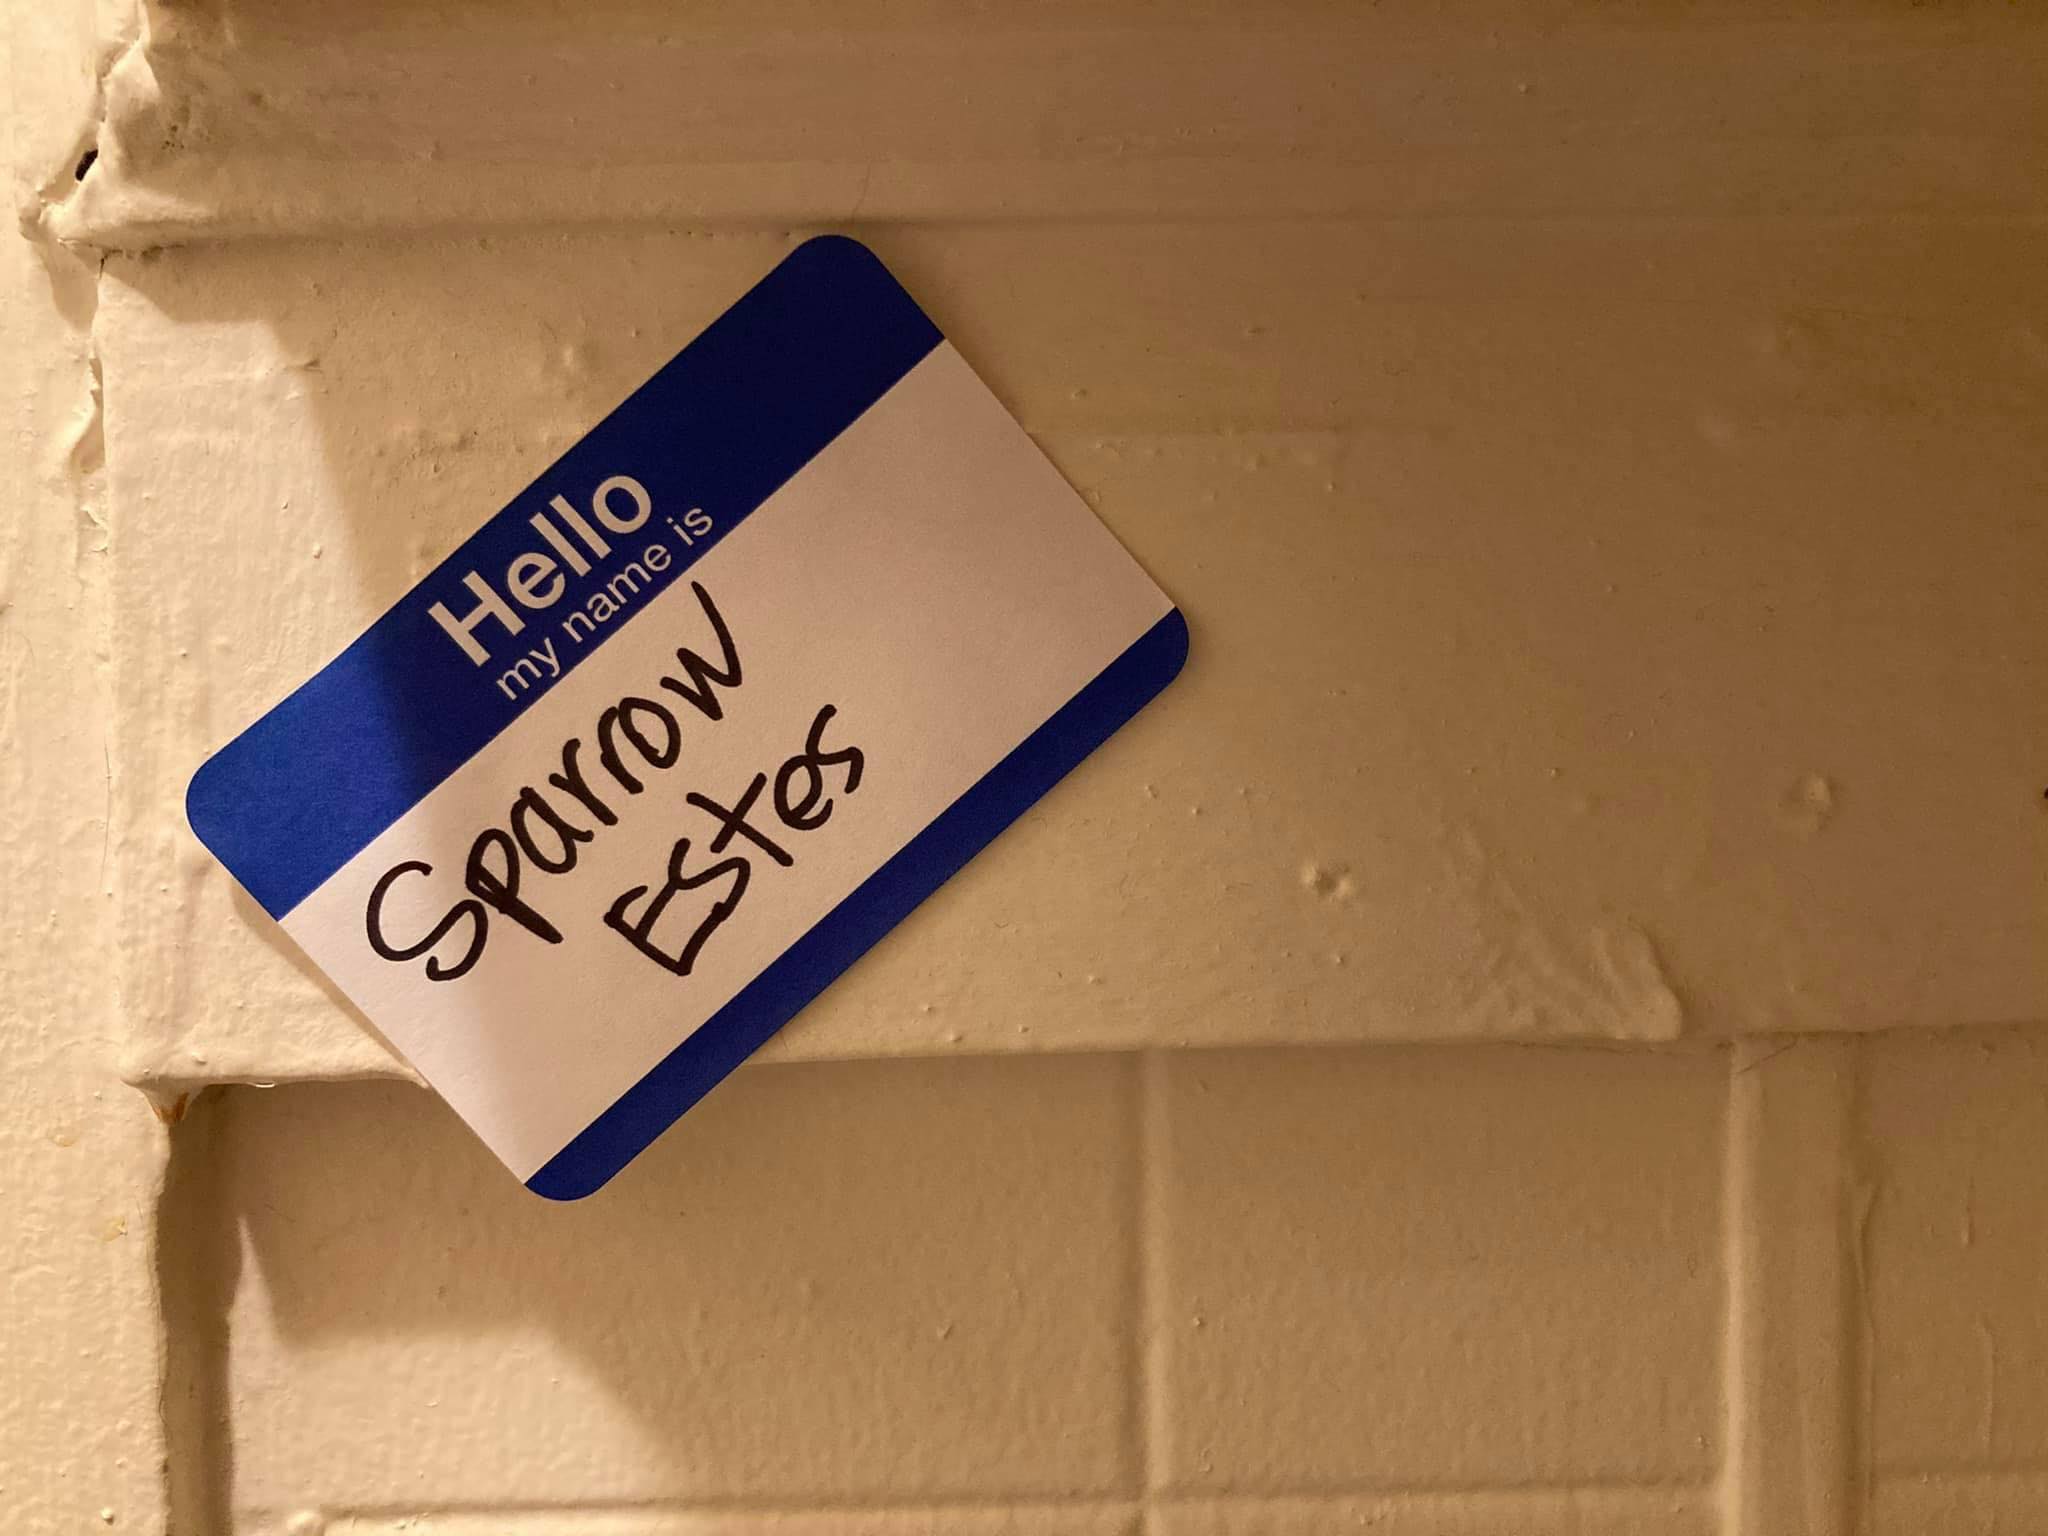 Hello
my name is
Sparrow
Estes